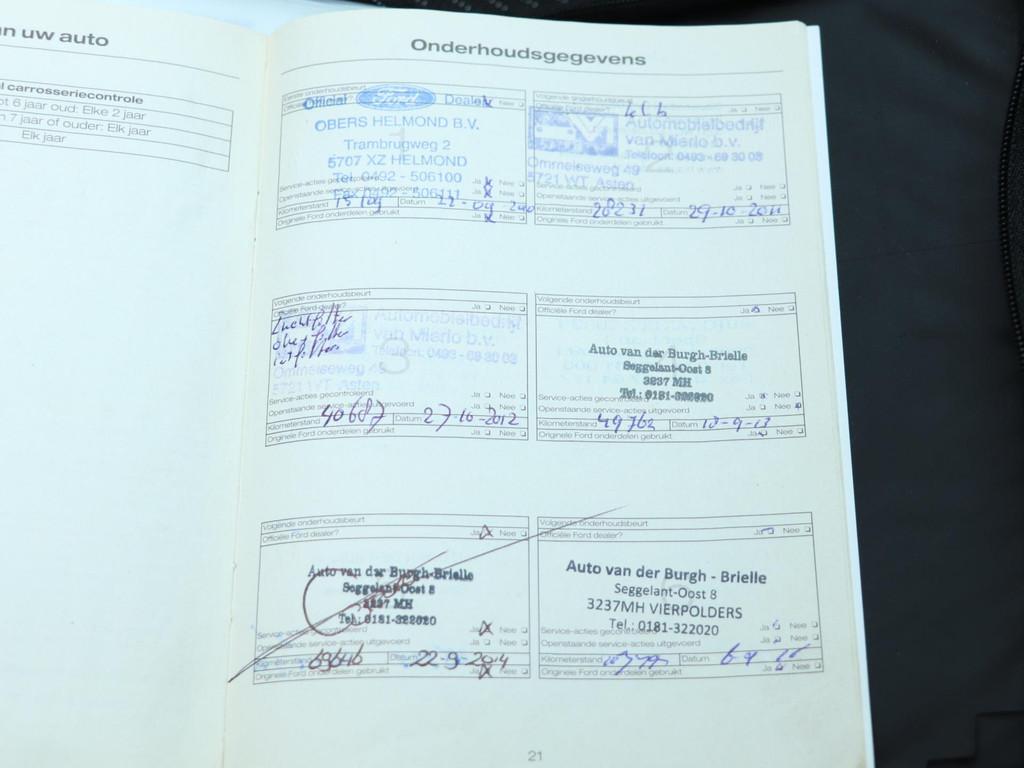 n uw auto
l carrosseriecontrole
ot 6 jaar oud: Elke 2 jaar
n 7 jaar of ouder: Elk jaar
Elk jaar
Onderhoudsgegevens
Official Ford Dealer Nee
OBERS HELMOND B.V.
Trambrugweg 2
5707 XZ HELMOND
Tel. 0492 - 506100
Service-acties gecontroleerd Ja Nee
Fax 0492 - 506111
Openstaande service-acties uitgevoerd Ja Nee
Kilometerstand Datum
Originele Ford onderdelen gebruikt Ja Nee
Volgende onderhoudsbeurt
Officiële Ford dealer? Ja Nee
Automobielbedrijf
van Mierlo b.v.
Telefoon: 0493 - 69 30 03
Ommelseweg 49
5721 WT Asten
Service-acties gecontroleerd Ja Nee
Openstaande service-acties uitgevoerd Ja Nee
Kilometerstand 28231 Datum 29-10-2011
Originele Ford onderdelen gebruikt Ja Nee
Volgende onderhoudsbeurt
Officiële Ford dealer? Ja Nee
Luchtfilter
Automobielbedrijf
van Mierlo b.v.
Telefoon: 0493 - 69 30 03
3
Ommelseweg 49
5721 WT Asten
Service-acties gecontroleerd Ja Nee
Openstaande service-acties uitgevoerd Ja Nee
Kilometerstand 40687 Datum 27-10-2012
Originele Ford onderdelen gebruikt Ja Nee
Volgende onderhoudsbeurt
Officiële Ford dealer? Ja Nee
Auto van der Burgh-Brielle
Seggelant-Oost 8
3237 MH
Tel.: 0181-322020
Service-acties gecontroleerd Ja Nee
Openstaande service-acties uitgevoerd Ja Nee
Kilometerstand 49762 Datum
Originele Ford onderdelen gebruikt Ja Nee
Volgende onderhoudsbeurt
Officiële Ford dealer? Ja Nee
Auto van der Burgh-Brielle
Seggelant-Oost 8
3237 MH
Tel.: 0181-322020
Service-acties gecontroleerd Ja Nee
Openstaande service-acties uitgevoerd Ja Nee
Kilometerstand 69646 Datum 22-9-2014
Originele Ford onderdelen gebruikt Ja Nee
Volgende onderhoudsbeurt
Officiële Ford dealer? Ja Nee
Auto van der Burgh - Brielle
Seggelant-Oost 8
3237MH VIERPOLDERS
Tel.: 0181-322020
Service-acties gecontroleerd Ja Nee
Openstaande service-acties uitgevoerd Ja Nee
Kilometerstand Datum
Originele Ford onderdelen gebruikt Ja Nee
21